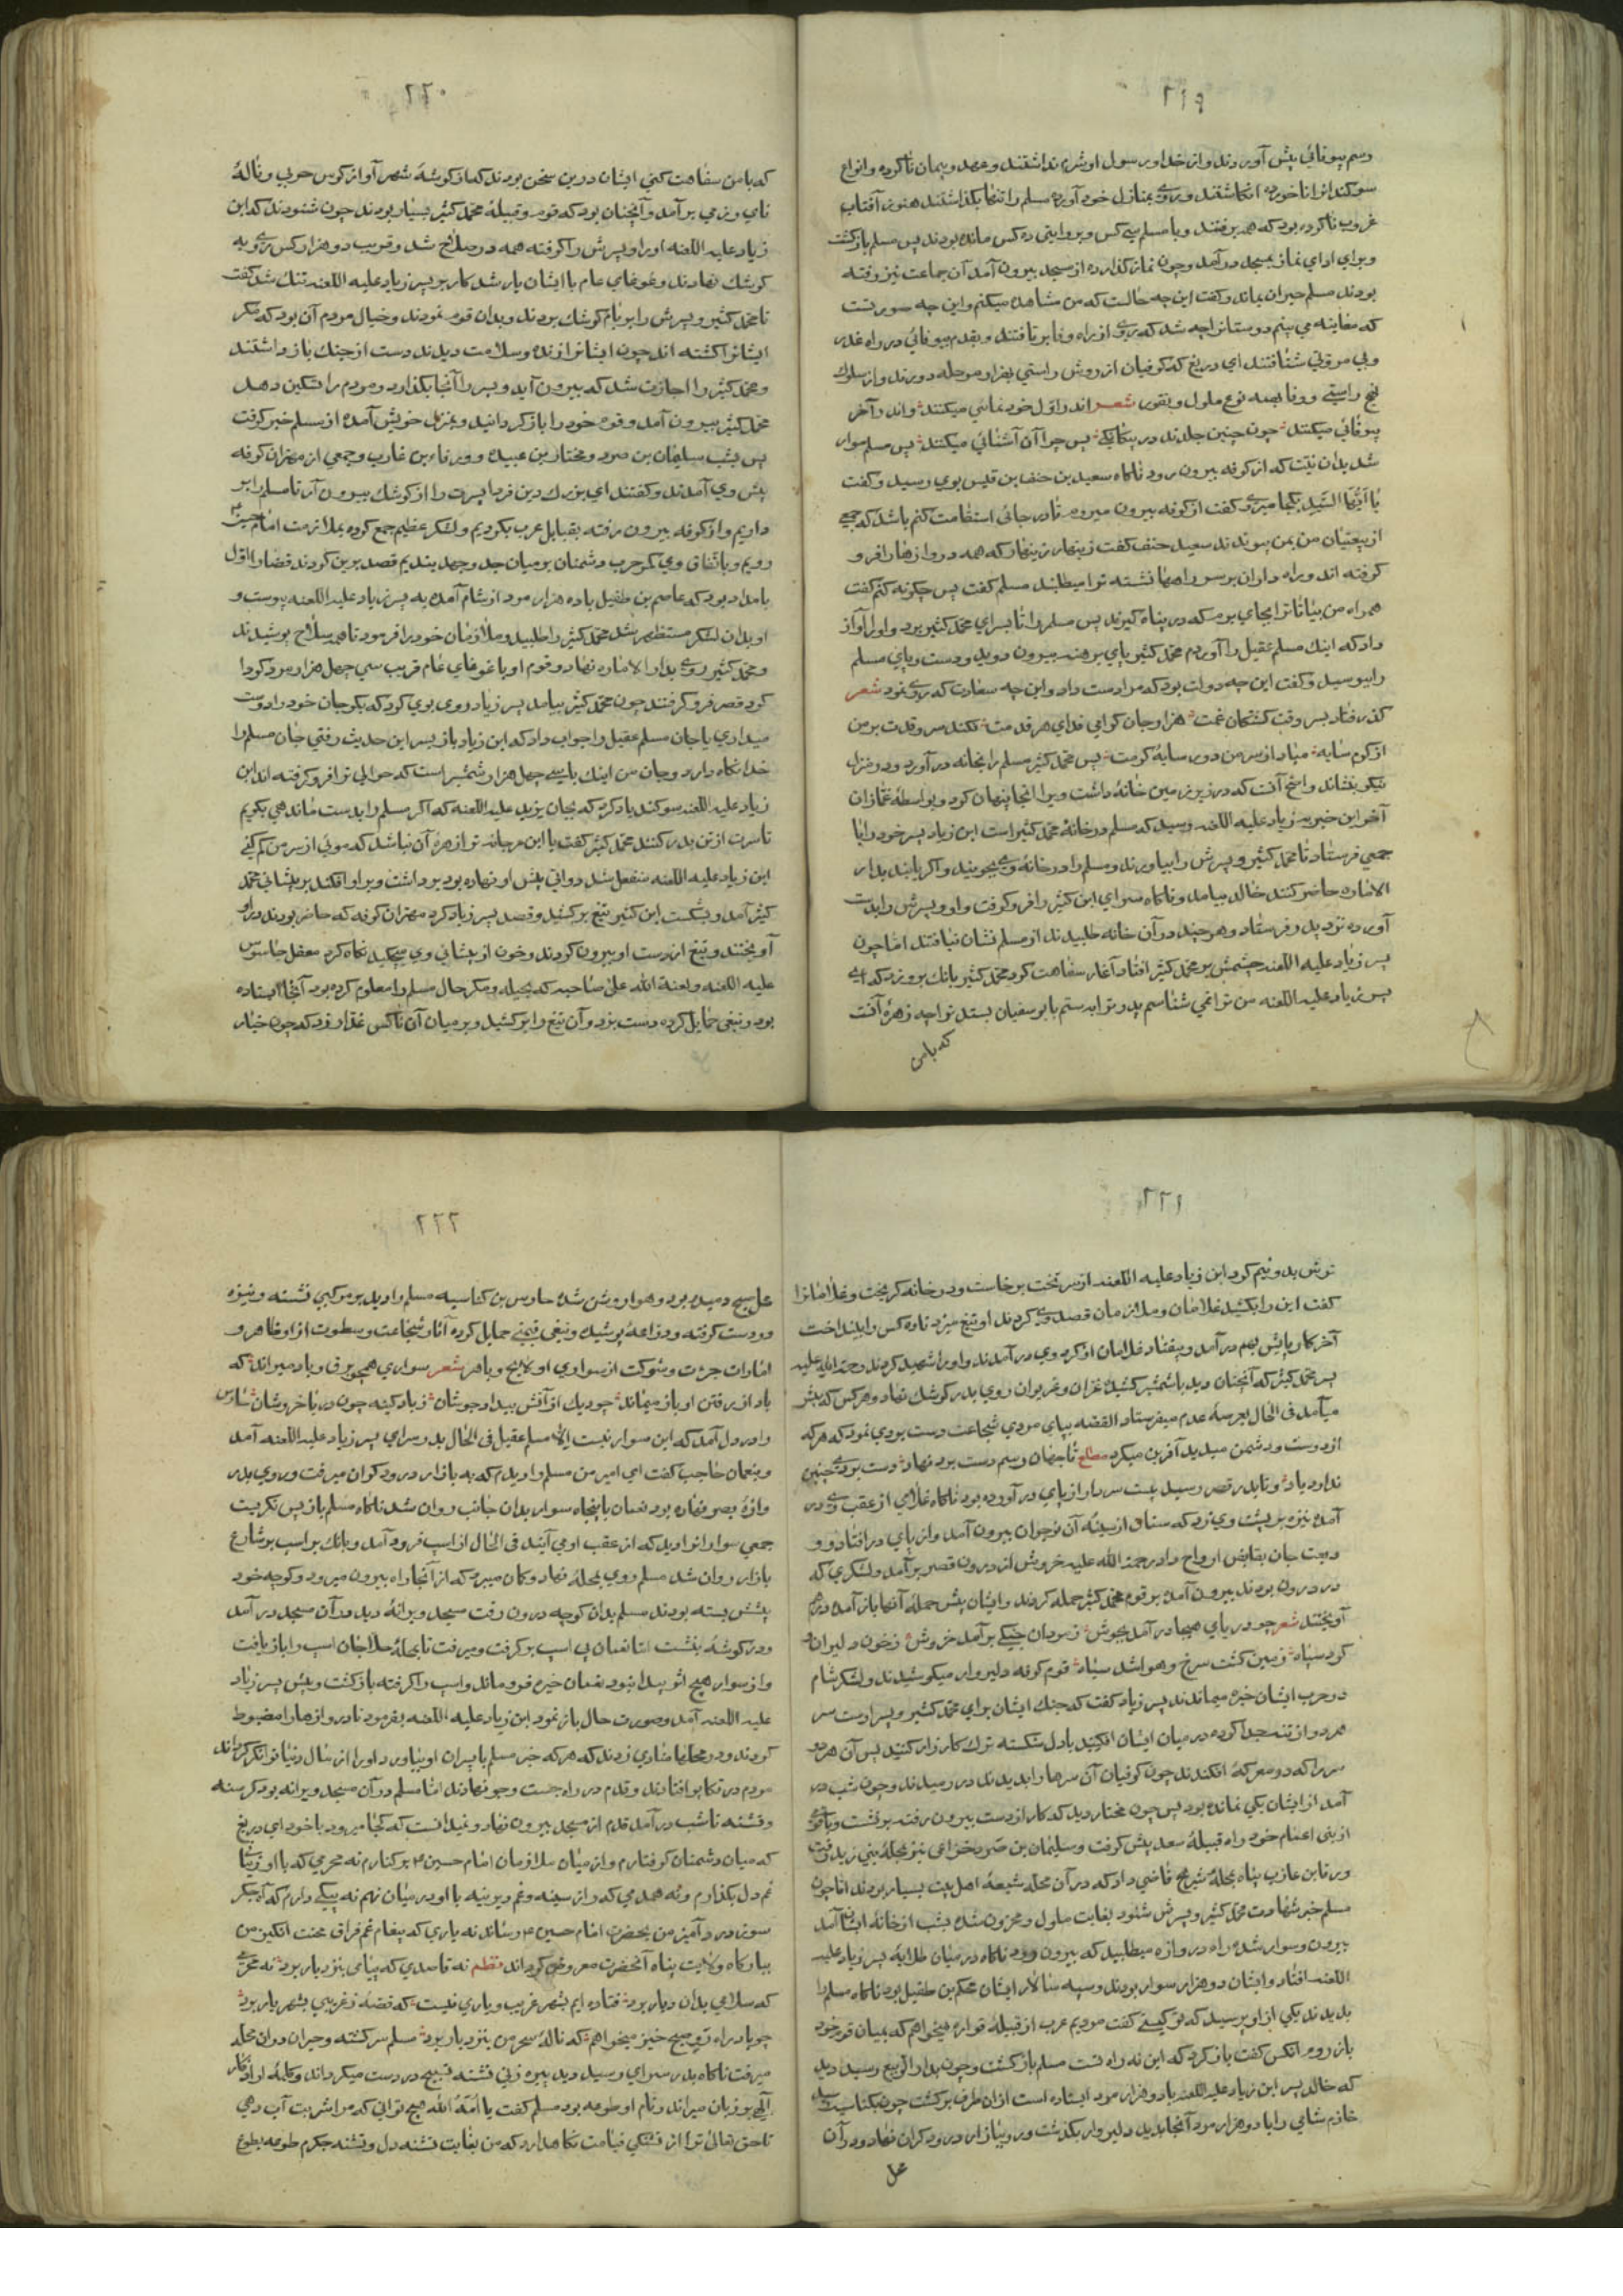 ٢١٩
رسم بیوفائی پیش آوردند و از خدا و رسول او شرم نداشتند و عهد و پیمان ناکرده و انواع
سوکندانرا ناخورده انکاشتند و روی بمنازل خود آورده مسلم را تنها بکذاشتند هنوز آفتاب
غروب ناکرده بود که همه برفتند و با مسلم سی کس و بروایتی ده کس مانده بودند پس مسلم بازکشت
و برای ادای نماز بمسجد درآمد و چون نماز کذارده از مسجد بیرون آمد آن جماعت نیز رفته
بودند مسلم حیران بماند و کفت این چه حالت که من مشاهده میکنم و این چه صورتست
که معاینه می بینم دوستانرا چه شد که روی از راه وفا برتافتند و بقدم بیوفائی در راه غدر
و بی مروتی شتافتند ای دریغ که کوفیان از روش راستی بهزار مرحله دورند و از سلوک
نهج راستی و وفا بهمه نوع ملول و نفور شعر اند و اول خودنمائی میکنند و اندر آخر
بیوفائی میکنند چون چنین جلدند در بیکانکی پس چرا آن آشنائی میکنند پس مسلم سوار
شد بدان نیت که از کوفه بیرون رود ناکاه سعید بن حنف بن قیس بوی رسید و کفت
یا ایها السید بکجا میروی کفت از کوفه بیرون میروم تا در جائی استقامت کنم باشد که جمعی
از بیعتیان من بمن پیوندند سعید حنف کفت زینهار زینهار که همه دروازها را فرو
کرفته اند و راه داران بر سر راهها نشسته ترا میطلبند مسلم کفت پس چکونه کنم کفت
همراه من بیا تا ترا بجای برم که در پناه کیرند پس مسلم را تا بسرای محمد کثیر برد و او را آواز
داد که اینک مسلم عقیل را آوردم محمد کثیر پای برهنه بیرون دوید و دست و پای مسلم
را ببوسید و کفت این چه دولت بود که مرا دست داد و این چه سعادت که روی نمود شعر
کذر فتاد بسر وقت کشتکان غمت هزار جان کرامی فدای هر قدمت فکند سرو قدت بر من
از کرم سایه مباد از سر من دور سایهٔ کرمت پس محمد کثیر مسلم را بخانه درآورد و در منزل
نیکو بنشاند و اصح آنست که در زیر زمین خانهٔ داشت ویرا آنجا پنهان کرد و بواسطهٔ غمازان
آخر این خبر به زیاد علیه اللعنه رسید که مسلم در خانهٔ محمد کثیر است ابن زیاد پسر خود را با
جمعی فرستاد تا محمد کثیر و پسرش را بیاورند و مسلم را در خانهٔ وی بجویند و اکر یابند بدار
الاماره حاضر کنند خالد بیامد و ناکاه سرای ابن کثیر را فرو کرفت و او و پسرش را بدست
آورده نزد پدر فرستاد و هر چند در آن خانه طلبیدند از مسلم نشان نیافتند اما چون
پسر زیاد علیه اللعنه چشمش بر محمد کثیر افتاد آغاز سفاهت کرد محمد کثیر بانک برو زد که ای
پسر زیاد علیه اللعنه من ترا نمی شناسم پدر ترا بستم بابو سفیان بستند ترا چه زهرهٔ آنست
که با من
٢٢٠
که با من سفاهت کنی ایشان درین سخن بودند که از کوشهٔ شهر آواز کوس حربی و نالهٔ
نای رزمی برآمد و آنچنان بود که قوم و قبیلهٔ محمد کثیر بسیار بودند چون شنودند که ابن
زیاد علیه اللعنه او را و پسرش را کرفته همه در سلاح شد و قریب دو هزار کس روی به
کوشک نهادند و غوغای عام با ایشان یار شد کار بر پسر زیاد علیه اللعنه تنک شد کفت
تا محمد کثیر و پسرش را بر بام کوشک بردند و بدان قوم نمودند و خیال مردم آن بود که مکر
ایشانرا کشته اند چون ایشانرا زنده و سلامت دیدند دست از جنک باز داشتند
و محمد کثیر را اجازت شد که بیرون آید و پسر را آنجا بکذارد و مردم را تسکین دهد
محمد کثیر بیرون آمد و قوم خود را باز کردانید و بمنزل خویش آمده از مسلم خبر کرفت
پس بشب سلیمان بن صرد و مختار بن عبیده و ورقاء بن غازب و جمعی از مهتران کوفه
پیش وی آمدند و کفتند ای بزرک دین فردا پسرت را از کوشک بیرون آر تا مسلم را بر
داریم و از کوفه بیرون رفته بقبایل عرب بکردیم و لشکر عظیم جمع کرده بملازمت امام حسین
رویم و باتفاق وی کمر حرب دشمنان بر میان جد و جهد بندیم قصد برین کردند قضارا اول
بامداد بود که عاصم بن طفیل با ده هزار مرد از شام آمده به پسر زیاد علیه اللعنه پیوست و
او بدان لشکر مستظهر شد محمد کثیر را طلبید و ملازمان خود را فرمود تا همه سلاح پوشیدند
و محمد کثیر روی بدار الاماره نهاد و قوم او با غوغای عام قریب سی چهل هزار مرد کردا
کرد قصر فرو کرفتند چون محمد کثیر بیامد پسر زیاد روی بوی کرد که بکو جان خود را دوست
میداری یا جان مسلم عقیل را جواب داد که ابن زیاد باز پس این حدیث رفتی جان مسلم را
خدا نکاه دارد و جان من اینک با سی چهل هزار شمشیر است که حوالی ترا فرو کرفته اند ابن
زیاد علیه اللعنه سوکند یاد کرد که بجان یزید علیه اللعنه که اکر مسلم را بدست ماندهی بکویم
تا سرت از تن بدر کنند محمد کثیر کفت یا ابن مرجانه ترا زهرهٔ آن نباشد که موئی از سر من کم کنی
ابن زیاد علیه اللعنه منفعل شد دواتی پیش او نهاده بود برداشت و بر او افکند بر پیشانی محمد
کثیر آمد و بشکست ابن کثیر تیغ برکشید و قصد پسر زیاد کرد مهتران کوفه که حاضر بودند در او
آویختند و تیغ از دست او بیرون کردند و خون از پیشانی وی میچکید نکاه کرد معقل جاسوس
علیه اللعنه و لعنة الله علی صاحبه که بحیله و مکر حال مسلم را معلوم کرده بود آنجا ایستاده
بود و تیغی حمایل کرده دست بزد و آن تیغ را برکشید و بر میان آن ناکس غدار زد که چون خیار
٢٢١
ترش بدو نیم کرد ابن زیاد علیه اللعنه از سر تخت برخاست و در خانه کریخت و غلامانرا
کفت این را بکشید غلامان و ملازمان قصد وی کردند او تیغ میزد تا ده کس را بینداخت
آخر کار پایش بهم درآمد و بیفتاد غلامان از کرد وی درآمدند و او را شهید کردند رحمة الله علیه
پسر محمد کثیر که آنچنان دید با شمشیر کشیده غران و غریوان روی بدر کوشک نهاد و هر کس که پیش
میآمد فی الحال بعرصهٔ عدم میفرستاد القصه بپای مردی شجاعت دست بردی نمود که هر که
از دوست و دشمن میدید آفرین میکرد مطلع تا جهان رسم دست برد نهاد دست بردی چنین
ندارد یاد و تا بدر قصر رسید بیست سردار از پای درآورده بود ناکاه غلامی از عقب وی در
آمده نیزه بر پشت وی زد که سنان از سینهٔ آن نوجوان بیرون آمد و از پای در افتاد و و
دیعت جان بقابض ارواح داد رحمة الله علیه خروش از درون قصر برآمد و لشکری که
در درون بودند بیرون آمده بر قوم محمد کثیر حمله کردند و ایشان پیش حملهٔ آنها باز آمده درهم
آویختند شعر چو دریای هیجا درآمد بجوش ز مردان جنکی برآمد خروش ز خون دلیران و
کرد سپاه زمین کشت سرخ و هوا شد سیاه قوم کوفه دلیروار میکوشیدند و لشکر شام
در حرب ایشان خیره میماندند پسر زیاد کفت که جنک ایشان برای محمد کثیر و پسر اوست سر
هر دو از تن جدا کرده در میان ایشان افکنید تا دل شکسته ترک کارزار کنند پس آن هر دو
سر را که در معرکه افکندند چون کوفیان آن سرها را بدیدند در رمیدند و چون شب در
آمد از ایشان یکی نمانده بود پس چون مختار دید که کار از دست بیرون رفته برنشست و با قومی
از بنی اعمام خود راه قبیلهٔ سعد پیش کرفت و سلیمان بن صرد خزاعی نیز بمحلهٔ بنی زید رفت
ورقا بن عازب پناه بمحلهٔ شریح قاضی داد که در آن محله شیعهٔ اهل بیت بسیار بودند اما چون
مسلم خبر شهادت محمد کثیر و پسرش شنود بغایت ملول و محزون شده بشب از خانهٔ ایشان آمد
بیرون و سوار شده راه دروازه میطلبید که بیرون رود ناکاه در میان طلایهٔ پسر زیاد علیه
اللعنه افتاد و ایشان دو هزار سوار بودند و سپه سالار ایشان محکم بن طفیل بود ناکاه مسلم را
بدیدند یکی از او پرسید که تو کیستی کفت مردیم عرب از قبیلهٔ فزاره میخواهم که بمیان قوم خود
باز روم انکس کفت باز کرد که این نه راه تست مسلم بازکشت و چون بدار الربیع رسید دید
که خالد پسر ابن زیاد علیه اللعنه با دو هزار مرد ایستاده است از ان طرف برکشت چون بکناسه رسید
خازم شامی را با دو هزار مرد آنجا بدید دلیروار بکذشت و رو ببازار درودکران نهاد و در آن
محل
٢٢٢
محل صبح دمیده بود و هوا روشن شده حارس بن کناسیه مسلم را دید بر مرکبی نشسته و نیزه
در دست کرفته و دراعهٔ پوشیده و تیغی قیمتی حمایل کرده آثار شجاعت و سطوت از او ظاهر و
امارات جرٔت و شوکت از سواری او لایح و باهر شعر سواری همچو برق و باد میراند که
باد از رفتن او باز میماند چو دیک از آتش بیداد جوشان ز باد کینه چون دریا خروشان حارس
را در دل آمد که این سوار نیست الا مسلم عقیل فی الحال بدر سرای پسر زیاد علیه اللعنه آمد
و بنعمان حاجب کفت ای امیر من مسلم را دیدم که به بازار درودکران میرفت و روی بدر
وازهٔ بصره نهاده بود نعمان با پنجاه سوار بدان جانب روان شد ناکاه مسلم باز پس نکریست
جمعی سوارانرا دید که از عقب او می آیند فی الحال از اسپ فرود آمد و بانک بر اسپ بر شارع
بازار روان شد مسلم روی بمحلهٔ نهاد و کمان میبرد که از آنجا راه بیرون میرود و کوچه خود
پیشش بسته بودند مسلم بدان کوچه درون رفت مسجد ویرانهٔ دید در آن مسجد درآمد
و در کوشهٔ بنشست اما نعمان پی اسپ برکرفت و میرفت تا بمحلهٔ حلاجان اسپ را باز یافت
و از سوار هیچ اثر پیدا نبود نعمان خیره فرو ماند و اسپ را کرفته بازکشت و پیش پسر زیاد
علیه اللعنه آمد و صورت حال باز نمود ابن زیاد علیه اللعنه بفرمود تا دروازهارا مضبوط
کردند و در محلها منادی زدند که هر که خبر مسلم یا پسران او بیاورد او را از مال دنیا توانکر کردانند
مردم در تکاپو افتادند و قدم در راه جست و جو نهادند اما مسلم در آن مسجد ویرانه بود کرسنه
و تشنه تا شب درآمد قدم از مسجد بیرون نهاد و نمیدانست که کجا میرود با خود ای دریغ
که میان دشمنان کرفتارم و از میان ملازمان امام حسین م بر کنارم نه محرمی که با او زمانی
غم دل بکذارم و نه همدمی که راز سینه و غم دیرینه با او در میان نهم نه پیکی دارم که آه جکر
سوز درد آمیز من بحضرت امام حسین ع رساند نه یاری که پیغام غم فراق محنت انکیز من
ببارکاه ولایت پناه آنحضرت معروض کرداند نظم نه قاصدی که پیامی بنزد یار برد نه محرمی
که سلامی بدان دیار برد فتاده ایم بشهر غریب و یاری نیست که قصهٔ ز غریبی بشهر یار برد
چو باد راه رو صبح خیز میخواهم که نالهٔ سحر من بنزد یار برد مسلم سرکشته و حیران در ان محله
میرفت ناکاه بدر سرای رسید دید پیره زنی نشسته تسبیح در دست میکرداند و کلمهٔ از اذکار
الهی بر زبان میراند و نام او طوعه بود مسلم کفت یا امة الله هیچ توانی که مرا شربت آب دهی
تا حق تعالی ترا از تشنکی قیامت نکاهدارد که من بغایت تشنه دل و تشنه جکرم طوعه بطوع